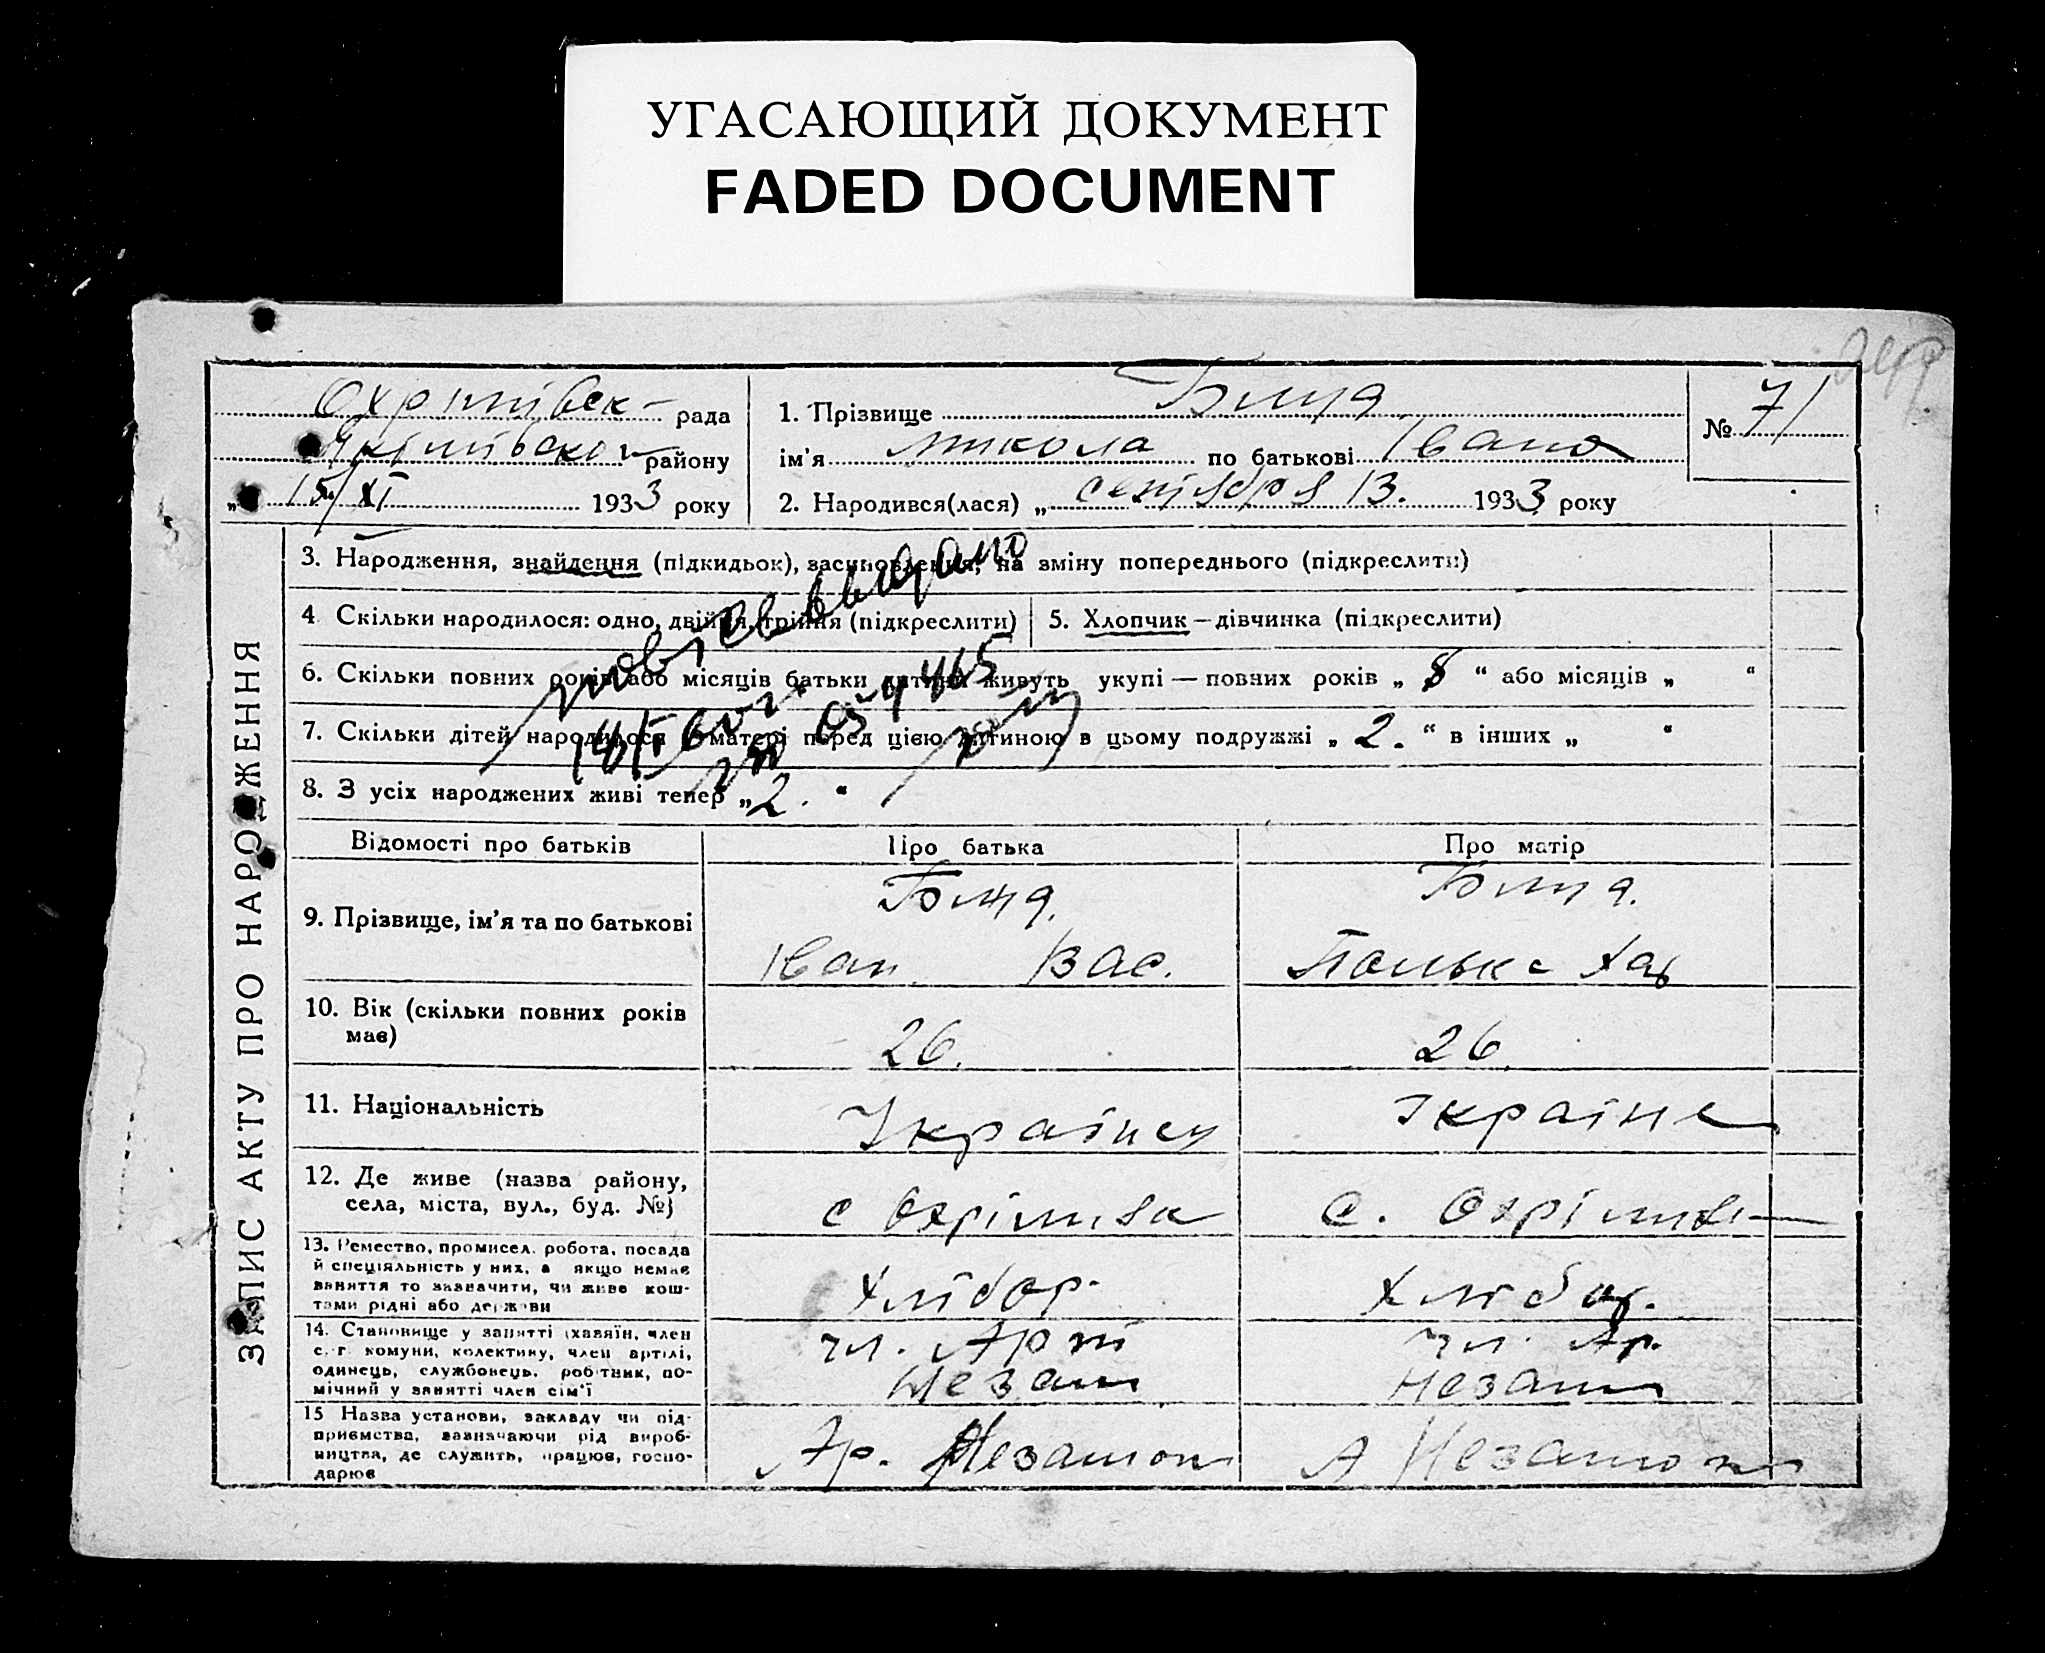 УГАСАЮЩИЙ ДОКУМЕНТ
FADED DOCUMENT
Охрімівск рада
району
15/XI 1933 року
1. Прізвище
ім'я микола по батькові Івано
2. Народився(лася) „ сентября 13. 1933 року
№ 71
ЗАПИС АКТУ ПРО НАРОДЖЕННЯ
3. Народження, знайдення (підкидьок), засиновлення, на зміну попереднього (підкреслити)
4. Скільки народилося: одно, двійня, трійня (підкреслити)
5. Хлопчик — дівчинка (підкреслити)
6. Скільки повних років або місяців батьки дитини живуть укупі — повних років „ 8 “ або місяців „ “
7. Скільки дітей народилося у матері перед цією дитиною в цьому подружжі „ 2. “ в інших „ “
8. З усіх народжених живі тепер „ 2. “
Відомості про батьків Про батька Про матір
9. Прізвище, ім'я та по батькові
Іван Вас.
10. Вік (скільки повних років
має)
26. 26
11. Національність
Українец Україн
12. Де живе (назва району,
села, міста, вул., буд. №)
с Охрімивка с. Охрімив
13. Ремество, промисел, робота, посада
й спеціяльність у них, а якщо немає
заняття то зазначити, чи живе кош-
тами рідні або держави
Хлібор. Хлібор.
14. Становище у занятті (хазяїн, член
с.-г. комуни, колективу, член артілі,
одинець, службовець, робітник, по-
мічний у занятті член сім'ї
чл. Арт чл. Ар.
Незам Незам
15 Назва установи, закладу чи під-
приємства, зазначаючи рід вироб-
ництва, де служить, працює, госпо-
дарює
Ар. Незамож А Незамож